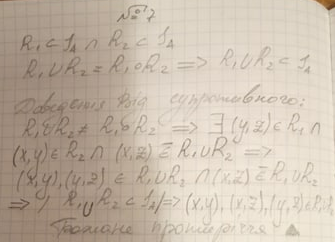 № 7
R₁ ⊂ I_A ∩ R₂ ⊂ I_A
R₁ ∪ R₂ = R₁ ∘ R₂ => R₁ ∪ R₂ ⊂ I_A
Доведення від супротивного:
R₁ ∪ R₂ ≠ R₁ ∘ R₂ => ∃ (y,z) ∈ R₁ ∩
(x,y) ∈ R₂ ∩ (x,z) ∈ R₁ ∪ R₂ =>
(x,y), (y,z) ∈ R₁ ∪ R₂ ∩ (x,z) ∈ R₁ ∪ R₂
=> R₁ ∪ R₂ ⊂ I_A => (x,y), (x,z), (y,z) ∈
протиріччя